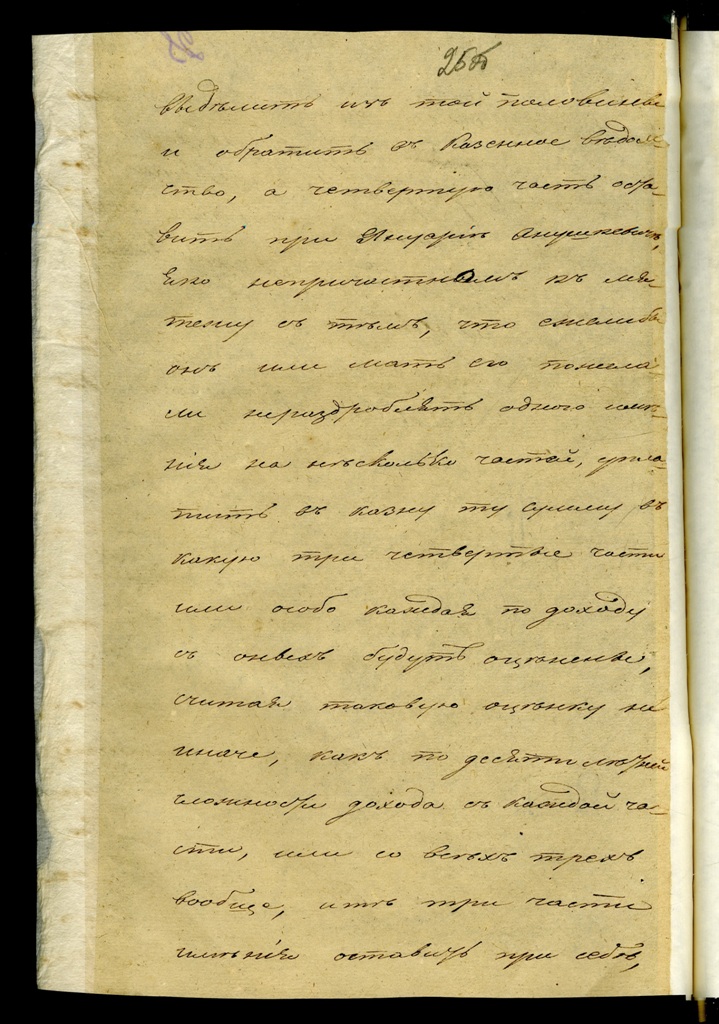 256
выдѣлить изъ той половины
и обратить въ казенное вѣдом-
ство, а четвертую часть оста-
вить при Януаріи Янушкевичѣ,
яко непричастномъ къ мя-
тежу съ тѣмъ, что ежелибы
онъ или мать его пожела-
ли нераздроблять одного имѣ-
нія на нѣсколько частей, упла-
тить въ казну ту сумму въ
какую три четвертые части
или особо каждая по доходу
съ оныхъ будутъ оцѣнены,
считая таковую оцѣнку не
иначе, какъ по десятилѣтней
сложности дохода съ каждой ча-
сти, или со всѣхъ трехъ
вообще, ить три части
имѣнія оставить при себѣ,